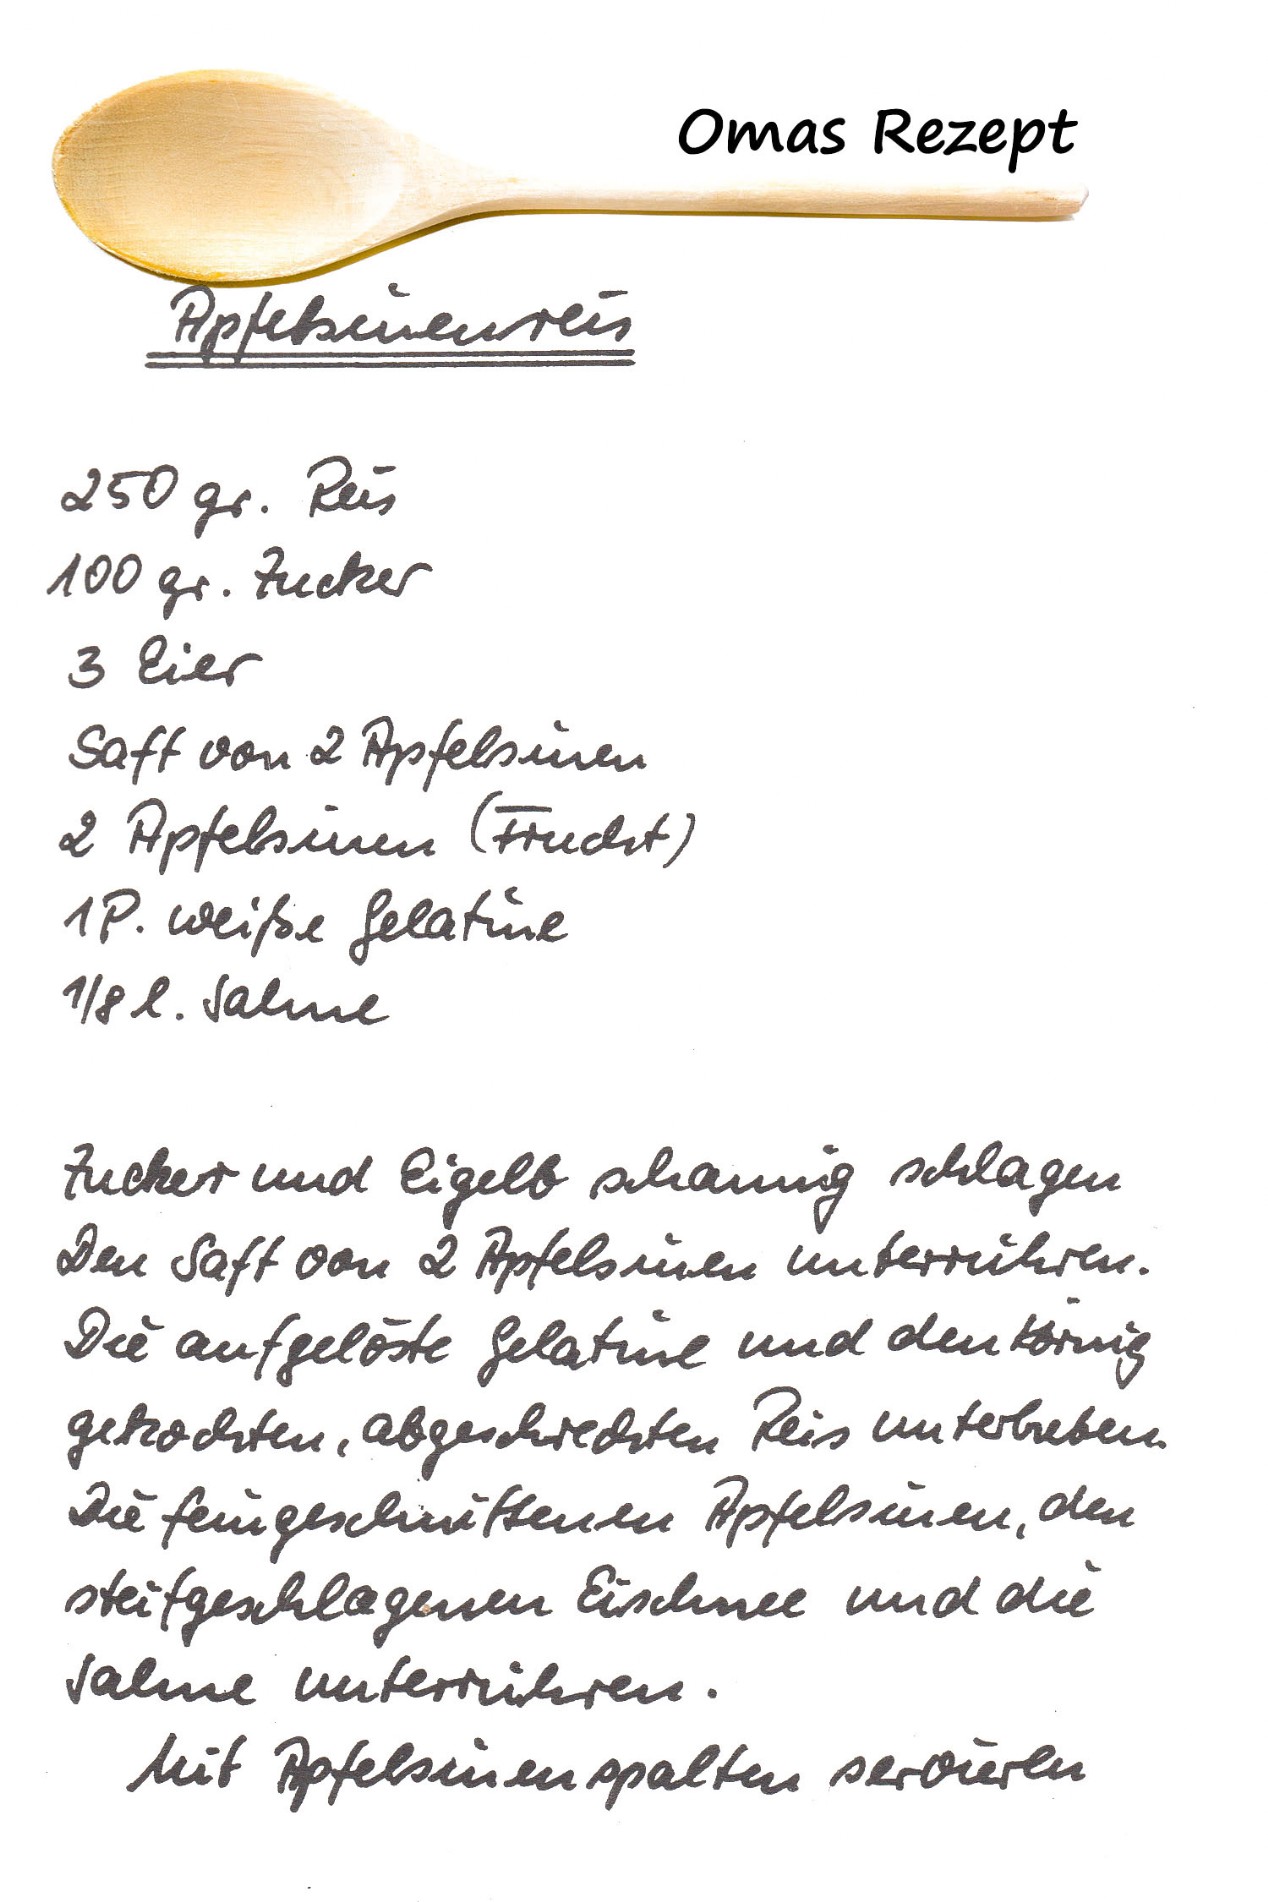 Omas Rezept
Apfelsinenreis
250 gr. Reis
100 gr. Zucker
3 Eier
Saft von 2 Apfelsinen
2 Apfelsinen (Frucht)
1 P. weiße Gelatine
1/8 l. Sahne
Zucker und Eigelb schaumig schlagen
Den Saft von 2 Apfelsinen unterrühren.
Die aufgelöste Gelatine und den körnig
gekochten, abgeschreckten Reis unterheben.
Die feingeschnittenen Apfelsinen, den
steifgeschlagenen Eischnee und die
Sahne unterrühren.
Mit Apfelsinenspalten servieren